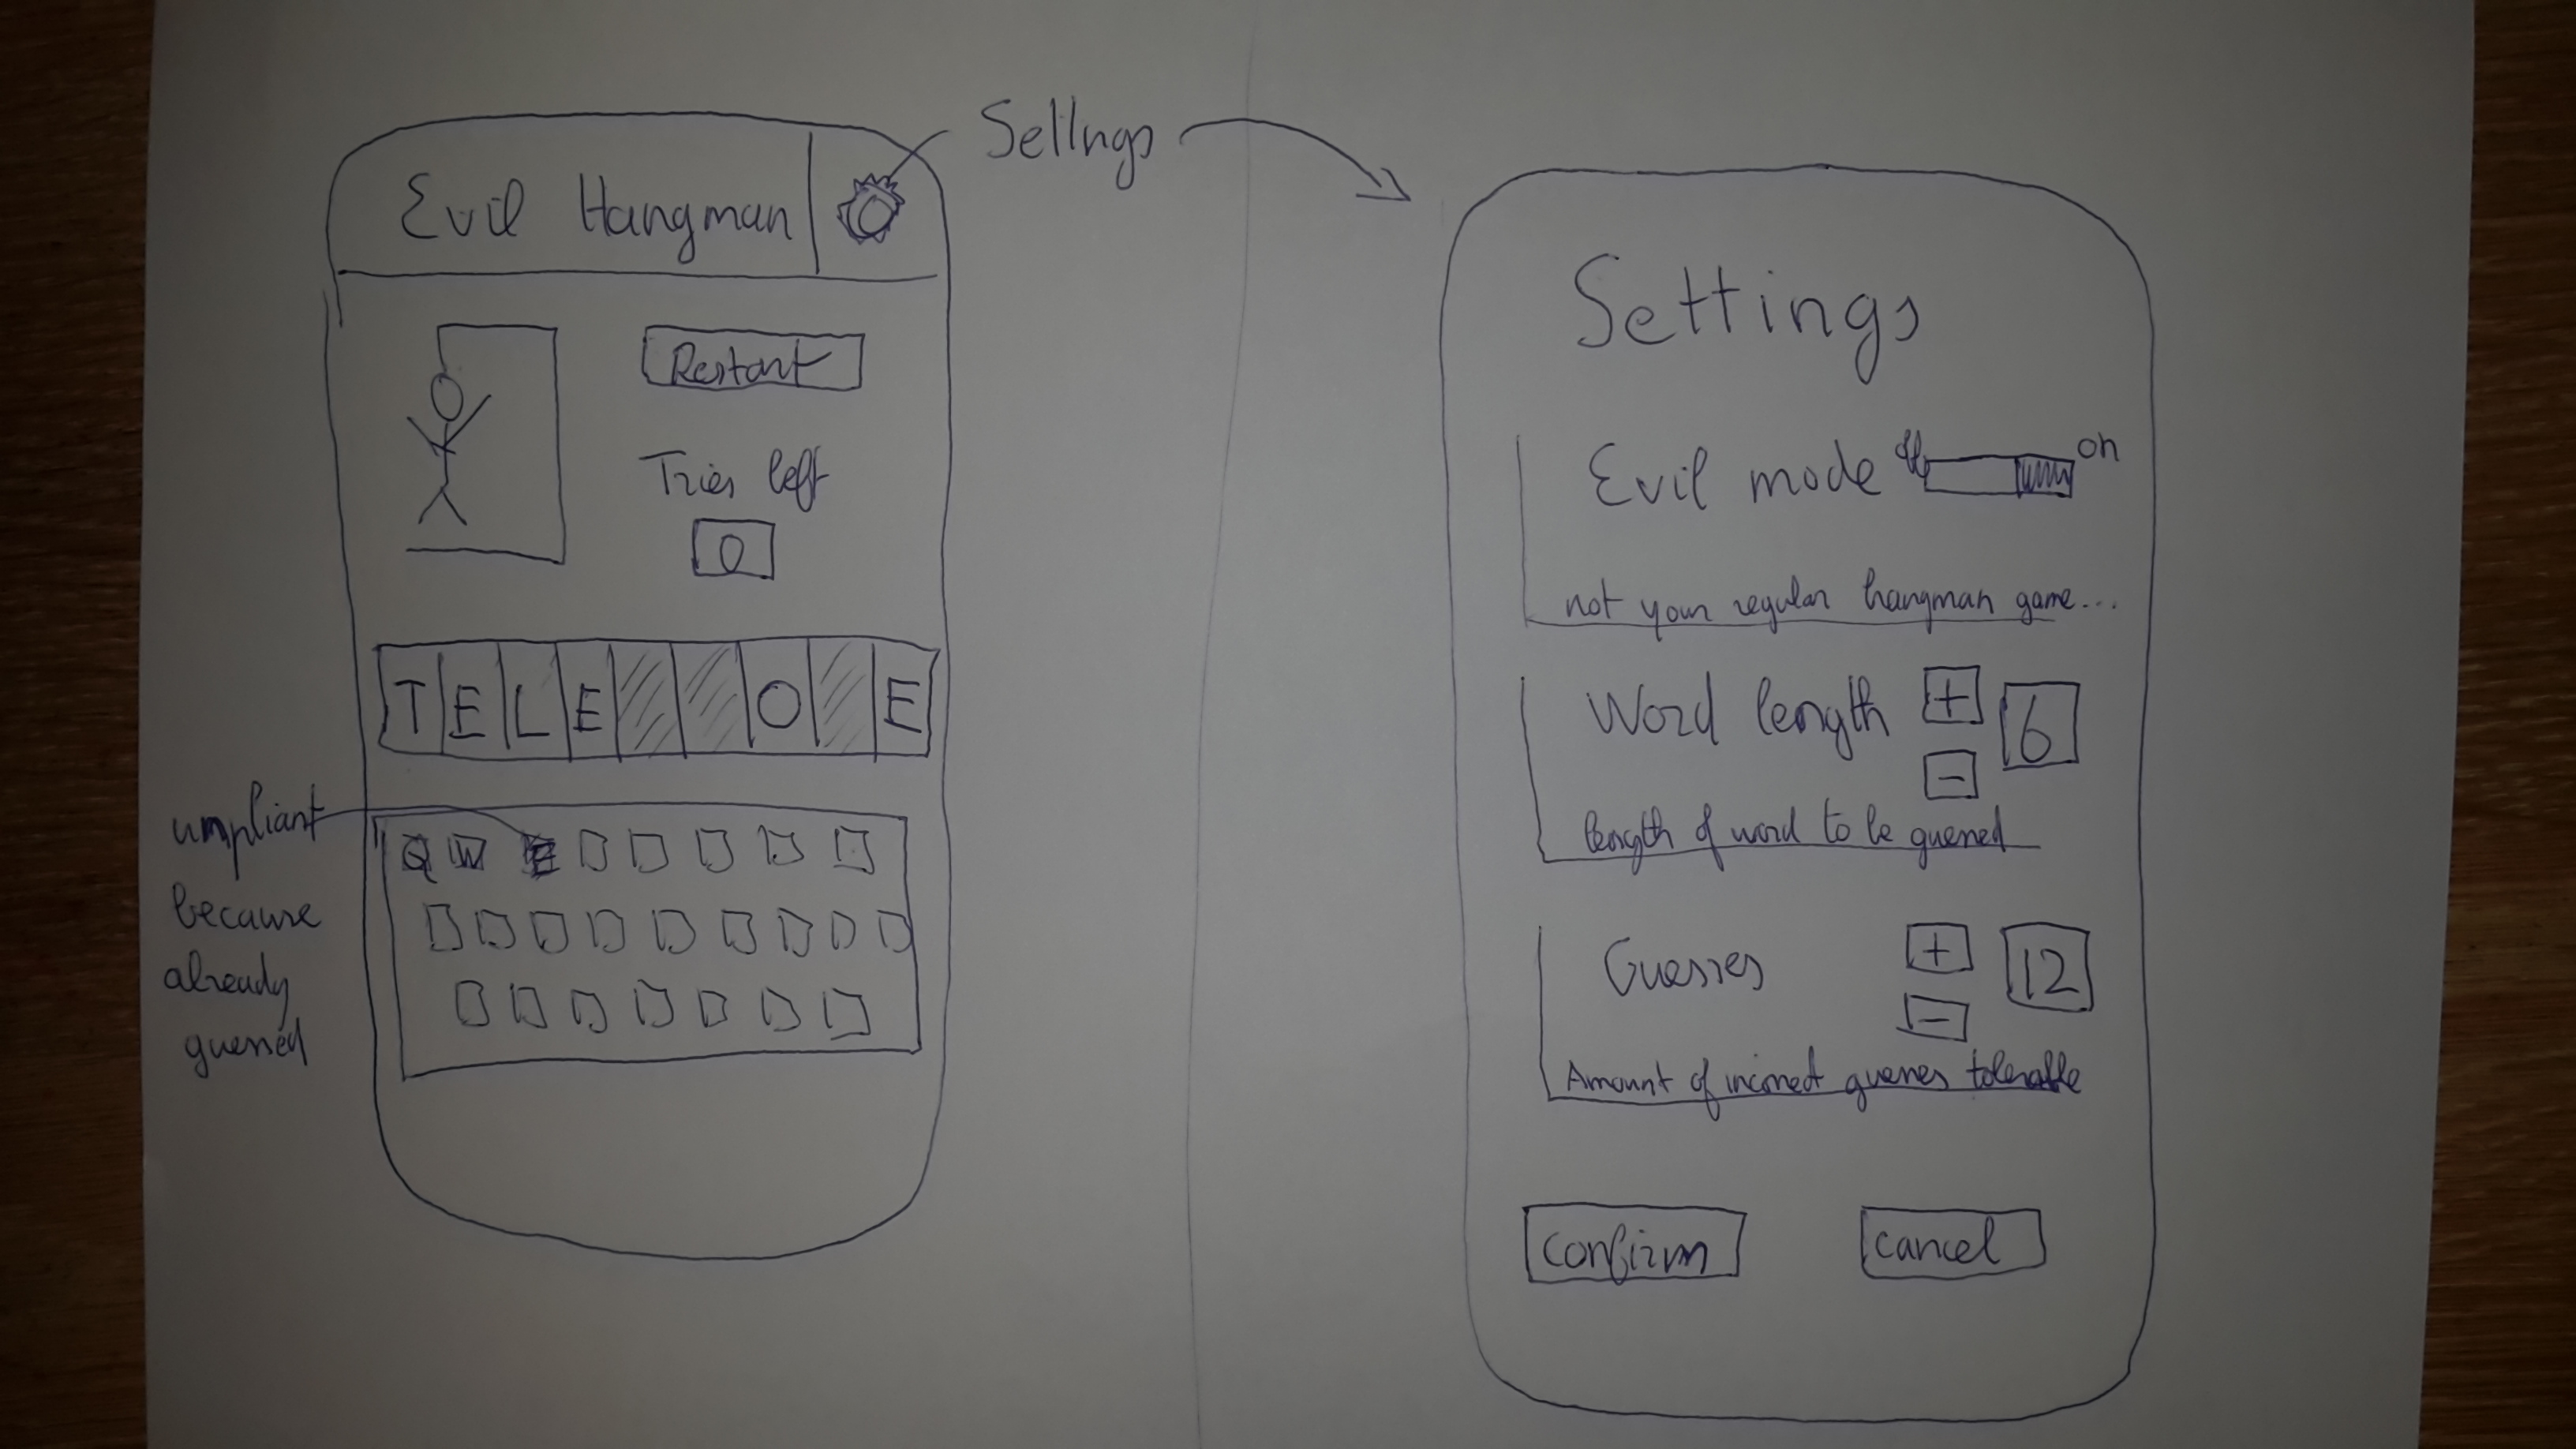 Settings
Evil Hangman
Restart
Tries left
0
T E L E O E
Q W E
because
already
guessed
Settings
Evil mode off on
not your regular hangman game...
Word length + 6
-
length of word to be guessed
Guesses + 12
-
Amount of incorrect guesses tolerable
confirm cancel